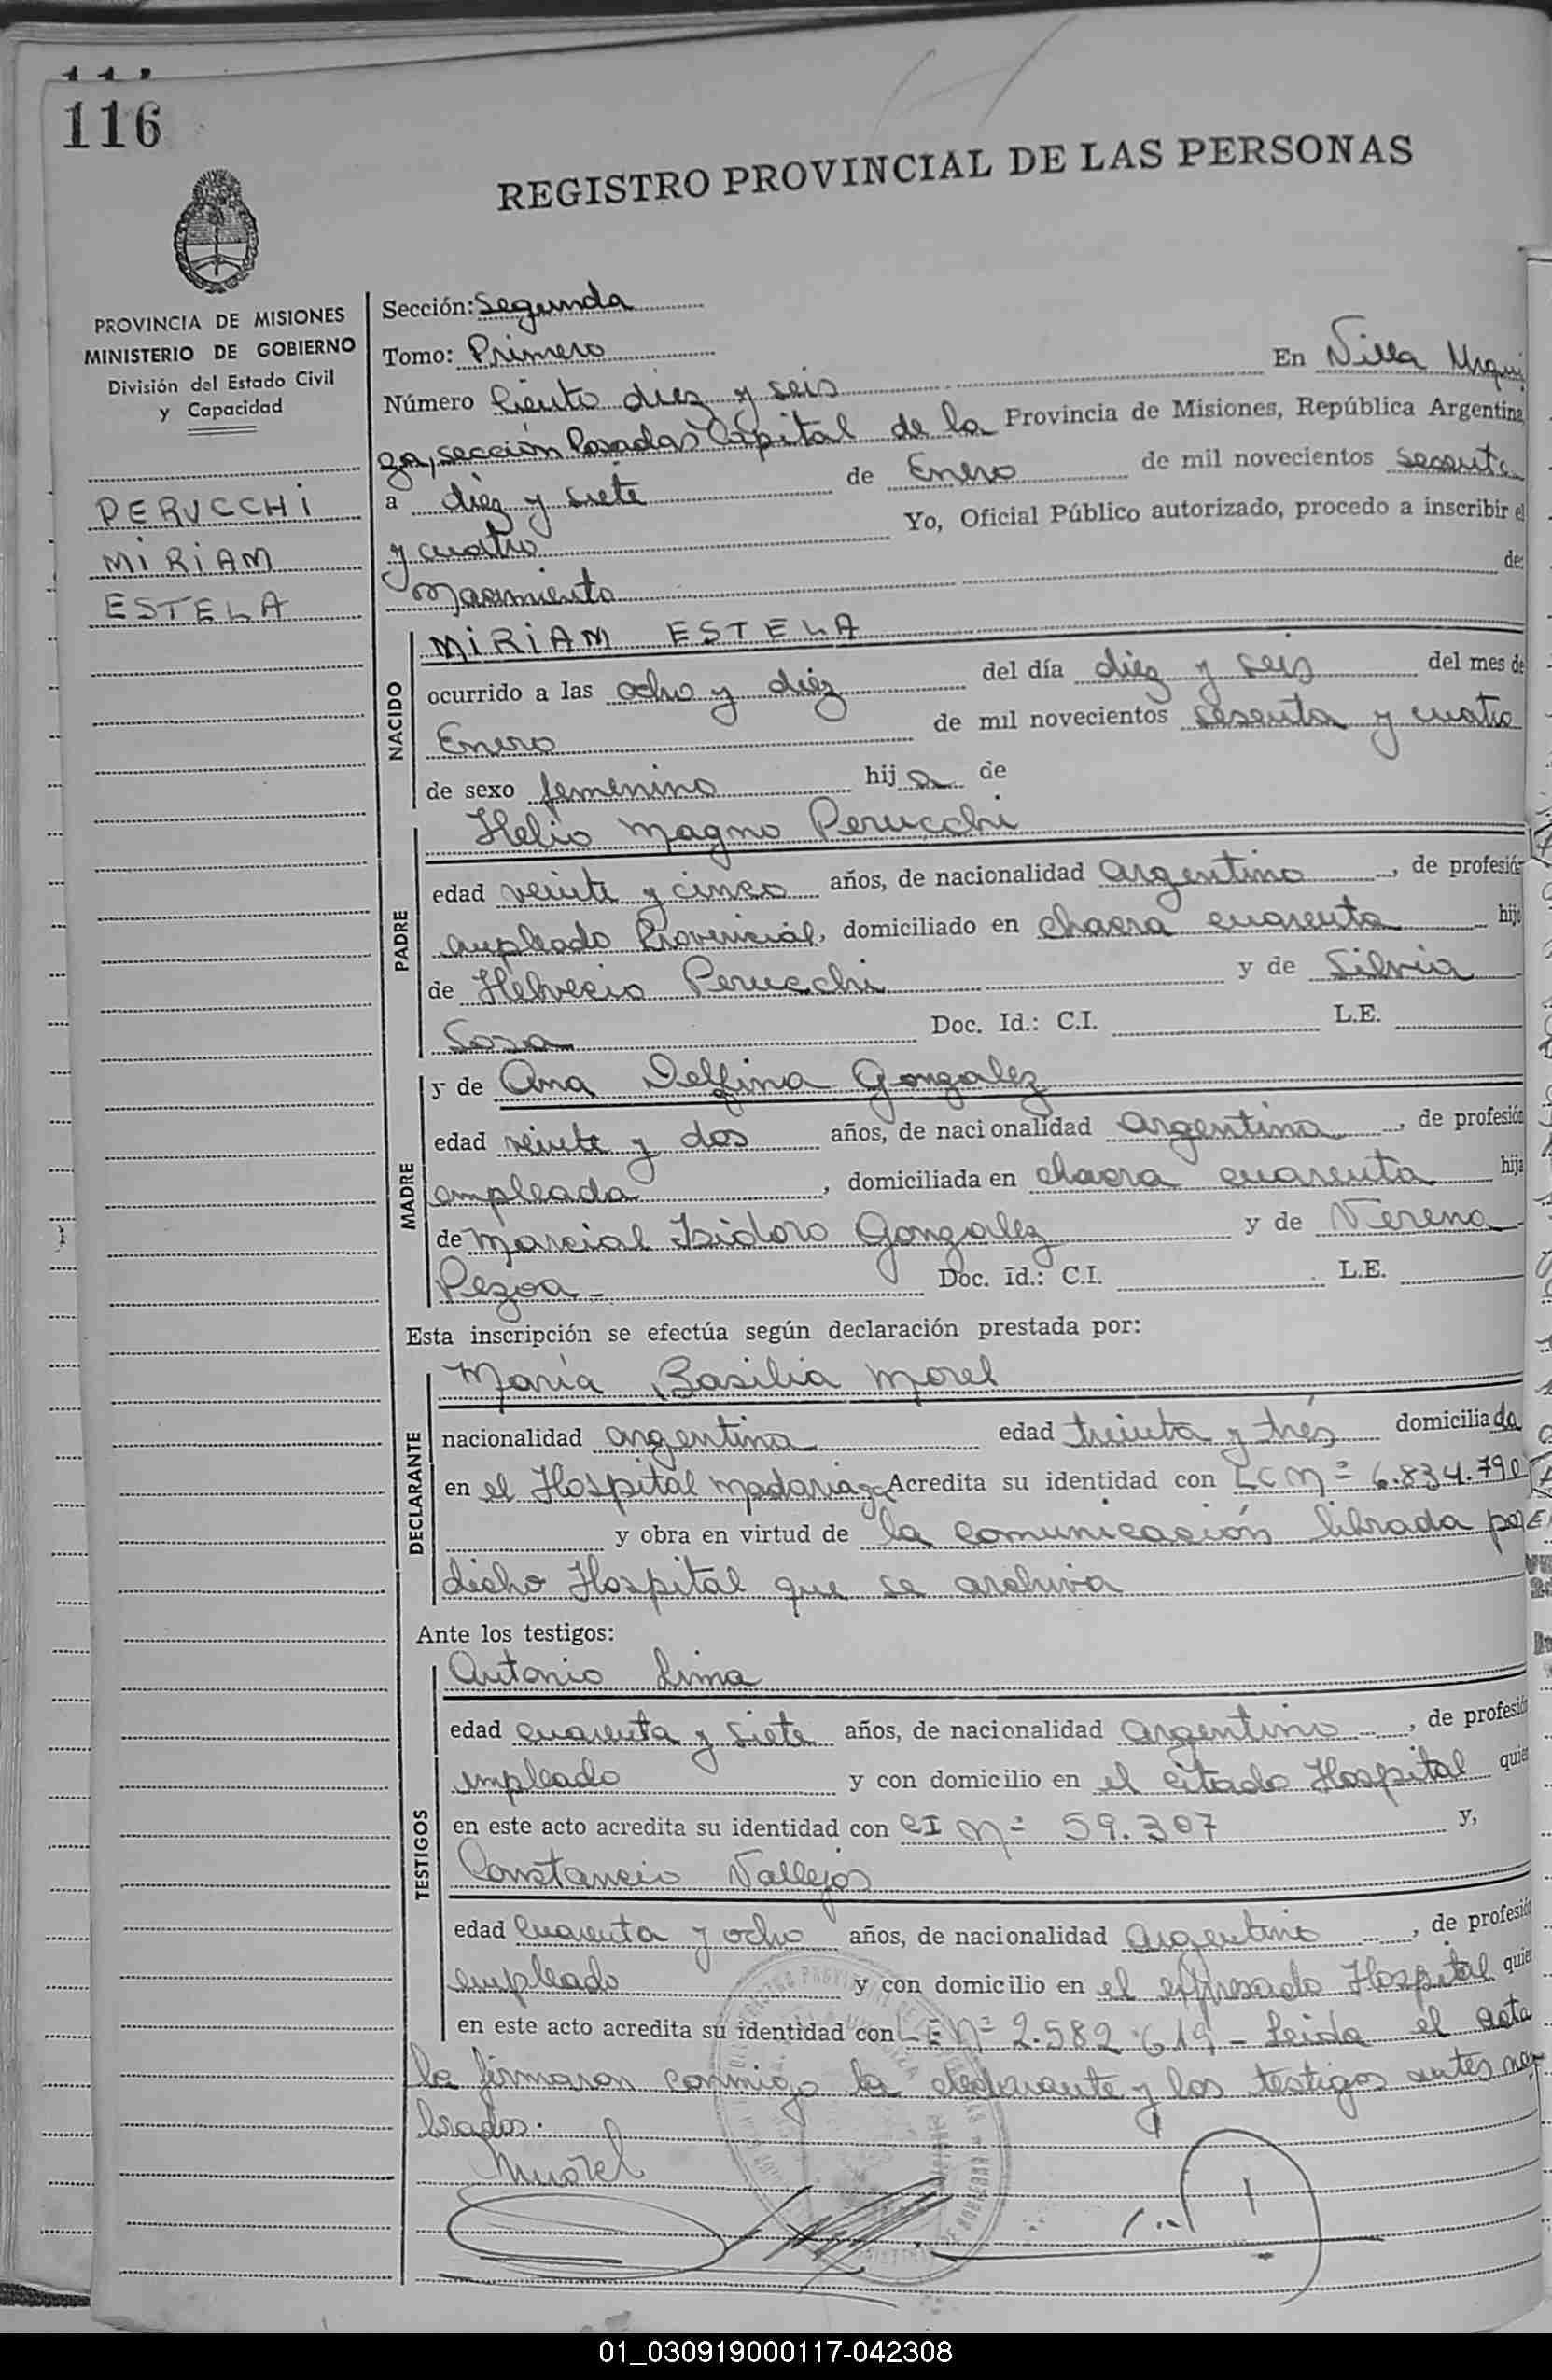 116
REGISTRO PROVINCIAL DE LAS PERSONAS
PROVINCIA DE MISIONES
MINISTERIO DE GOBIERNO
División del Estado Civil
y Capacidad
PERUCCHI
MIRIAM
ESTELA
Sección: Segunda
Tomo: Primero
Número Ciento diez y seis En Villa Urqui
za, sección Posadas Capital de la Provincia de Misiones, República Argentina
a diez y siete de Enero de mil novecientos sesenta
y cuatro Yo, Oficial Público autorizado, procedo a inscribir el
Nacimiento de:
NACIDO
MIRIAM ESTELA
ocurrido a las ocho y diez del día diez y seis del mes de
Enero de mil novecientos sesenta y cuatro
de sexo femenino hija de
PADRE
Helio Magno Perucchi
edad veinte y cinco años, de nacionalidad argentina, de profesión
empleado Provincial, domiciliado en chacra cuarenta hijo
de Helvecio Perucchi y de Silvia
Sosa Doc. Id.: C.I. L.E.
MADRE
y de Ana Delfina Gonzalez
edad veinte y dos años, de nacionalidad argentina, de profesión
empleada, domiciliada en chacra cuarenta hija
de Marcial Isidoro Gonzalez y de Nerena
Pezoa - Doc. Id.: C.I. L.E.
Esta inscripción se efectúa según declaración prestada por:
DECLARANTE
María Basilia Morel
nacionalidad argentina edad treinta y trés domiciliada
en el Hospital Madariaga Acredita su identidad con LC Nº 6.834.790
y obra en virtud de la comunicación librada por
dicho Hospital que se archiva
Ante los testigos:
TESTIGOS
Antonio Lima
edad cuarenta y siete años, de nacionalidad argentino, de profesión
empleado y con domicilio en el citado Hospital quien
en este acto acredita su identidad con CI Nº 59.307 y,
Constancio Vallejos
edad cuarenta y ocho años, de nacionalidad argentino, de profesión
empleado y con domicilio en el expresado Hospital quien
en este acto acredita su identidad con LE Nº 2.582.619 - Leida el acta
la firmaron conmigo la declarante y los testigos antes nom
brados.
01_030919000117-042308